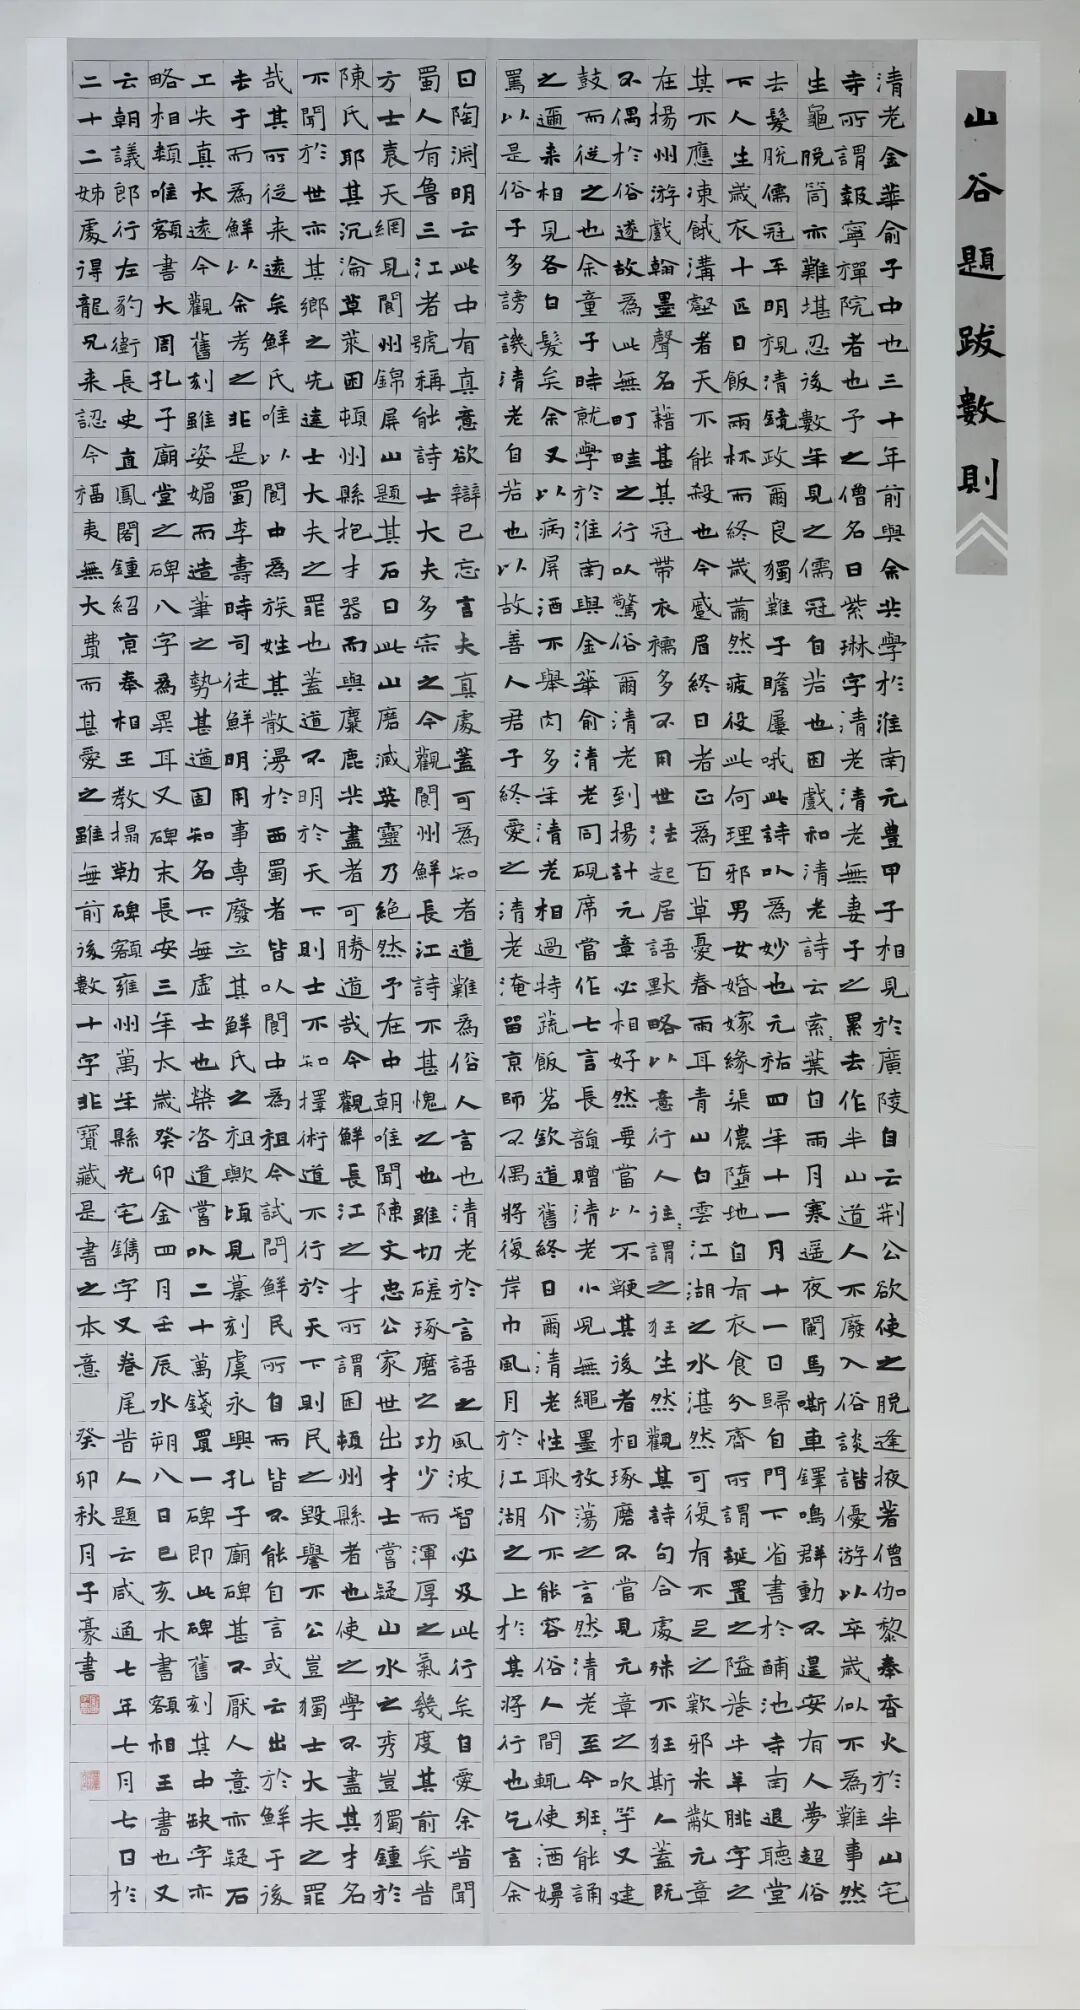 山谷題跋數則
清老金華俞子中也三十年前與余共學於淮南元豐甲子相見於廣陵自云荊公欲使之脫逢掖著僧伽黎奉香火於半山宅
寺所謂報寧禪院者也予之僧名曰紫琳字清老清老無妻子之累去作半山道人不廢入俗談諧優游以卒歲似不為難事然
生龜脫筒亦難堪忍後數年見之儒冠自若也因戲和清老詩云索〻葉自雨月寒遥夜闌馬嘶車鐸鳴群動不遑安有人夢超俗
去髮脫儒冠平明視清鏡政爾良獨難子瞻屢哦此詩以為妙也元祐四年十一月十一日歸自門下省書於酺池寺南退聽堂
下人生歲衣十匹日飯兩杯而終歲薾然疲役此何理邪男女婚嫁緣渠儂墮地自有衣食分齊所謂誕置之隘巷牛羊腓字之
其不應凍餓溝壑者天不能殺也今蹙眉終日者正為百草憂春雨耳青山白雲江湖之水湛然可復有不足之歎邪米黻元章
在揚州游戲翰墨聲名藉甚其冠帶衣襦多不用世法起居語默略以意行人往〻謂之狂生然觀其詩句合處殊不狂斯人蓋既
不偶於俗遂故為此無町畦之行以驚俗爾清老到揚計元章必相好然要當以不鞭其後者相琢磨不當見元章之吹竽又建
鼓而從之也余童子時就學於淮南與金華俞清老同硯席當作七言長韻贈清老小兒無繩墨放蕩之言然清老至今班〻能誦
之邇來相見各白髮矣余又以病屏酒不舉肉多年清老相過特蔬飯茗飲道舊終日爾清老性耿介不能容俗人間輒使酒嫚
罵以是俗子多謗譏清老自若也以故善人君子終愛之清老淹留京師不偶將復岸巾風月於江湖之上於其將行也乞言余
曰陶淵明云此中有真意欲辯已忘言夫真處蓋可為知者道難為俗人言也清老於言語之風波智必及此行矣自愛余昔聞
蜀人有魯三江者號稱能詩士大夫多宗之今觀閬州鮮長江詩不甚愧之也雖切磋琢磨之功少而渾厚之氣幾度其前矣昔
方士袁天綱見閬州錦屏山題其石曰此山磨滅英靈乃絕然予在中朝唯聞陳文忠公家世出才士嘗疑山水之秀豈獨鍾於
陳氏耶其沉淪草萊困頓州縣抱才器而與麋鹿共盡者可勝道哉今觀鮮長江之才所謂困頓州縣者也使之學不盡其才名
不聞於世亦其鄉之先達士大夫之罪也蓋道不明於天下則士不知擇術道不行於天下則民之毀譽不公豈獨士大夫之罪
哉其所從來遠矣鮮氏唯以閬中為族姓其散漫於西蜀者皆以閬中為祖今試問鮮民所自而皆不能自言或云出於鮮于後
去于而為鮮以余考之非是蜀李壽時司徒鮮明用事專廢立其鮮氏之祖歟頃見摹刻虞永興孔子廟碑甚不厭人意亦疑石
工失真太遠今觀舊刻雖姿媚而造筆之勢甚遒固知名下無虛士也榮咨道嘗以二十萬錢買一碑即此碑舊刻其中缺字亦
略相類唯額書大周孔子廟堂之碑八字為異耳又碑末長安三年太歲癸卯金四月壬辰水朔八日己亥木書額相王書也又
云朝議郎行左豹衛長史直鳳閣鍾紹京奉相王教搨勒碑額雍州萬年縣光宅鐫字又卷尾昔人題云咸通七年七月七日於
二十二姊處得龍兄來認今福夷無大費而甚愛之雖無前後數十字非寶藏是書之本意 癸卯秋月子豪書